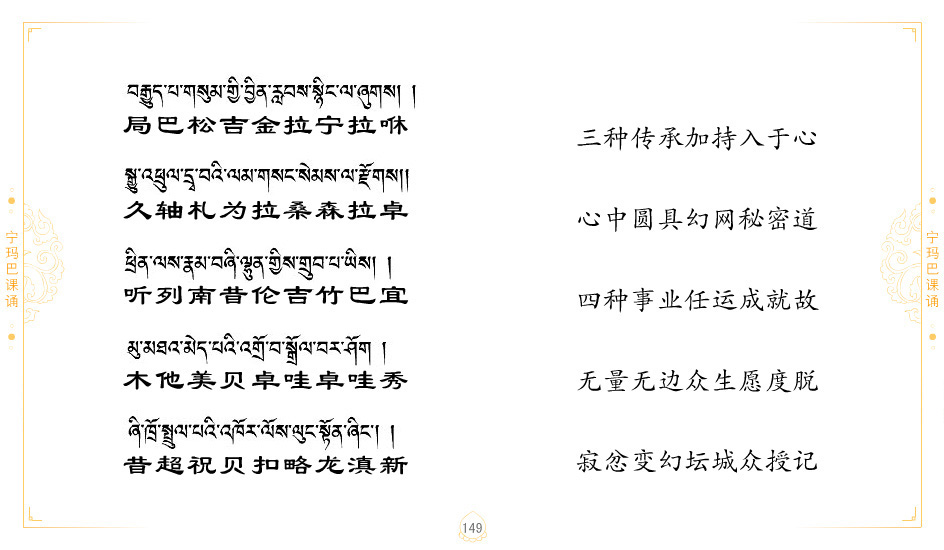 བརྒྱུད་པ་གསུམ་གྱི་བྱིན་རླབས་སྙིང་ལ་ཞུགས། །
局巴松吉金拉宁拉咻
三种传承加持入于心
སྒྱུ་འཕྲུལ་དྲྭ་བའི་ལམ་གསང་སེམས་ལ་རྫོགས།།
久轴札为拉桑森拉卓
心中圆具幻网秘密道
ཕྲིན་ལས་རྣམ་བཞི་ལྷུན་གྱིས་གྲུབ་པ་ཡིས། །
听列南昔伦吉竹巴宜
四种事业任运成就故
མུ་མཐའ་མེད་པའི་འགྲོ་བ་སྒྲོལ་བར་ཤོག །
木他美贝卓哇卓哇秀
无量无边众生愿度脱
ཞི་ཁྲོ་སྤྲུལ་པའི་འཁོར་ལོས་ལུང་སྟོན་ཞིང་། །
昔超祝贝扣略龙滇新
寂忿变幻坛城众授记
宁玛巴课诵
宁玛巴课诵
149